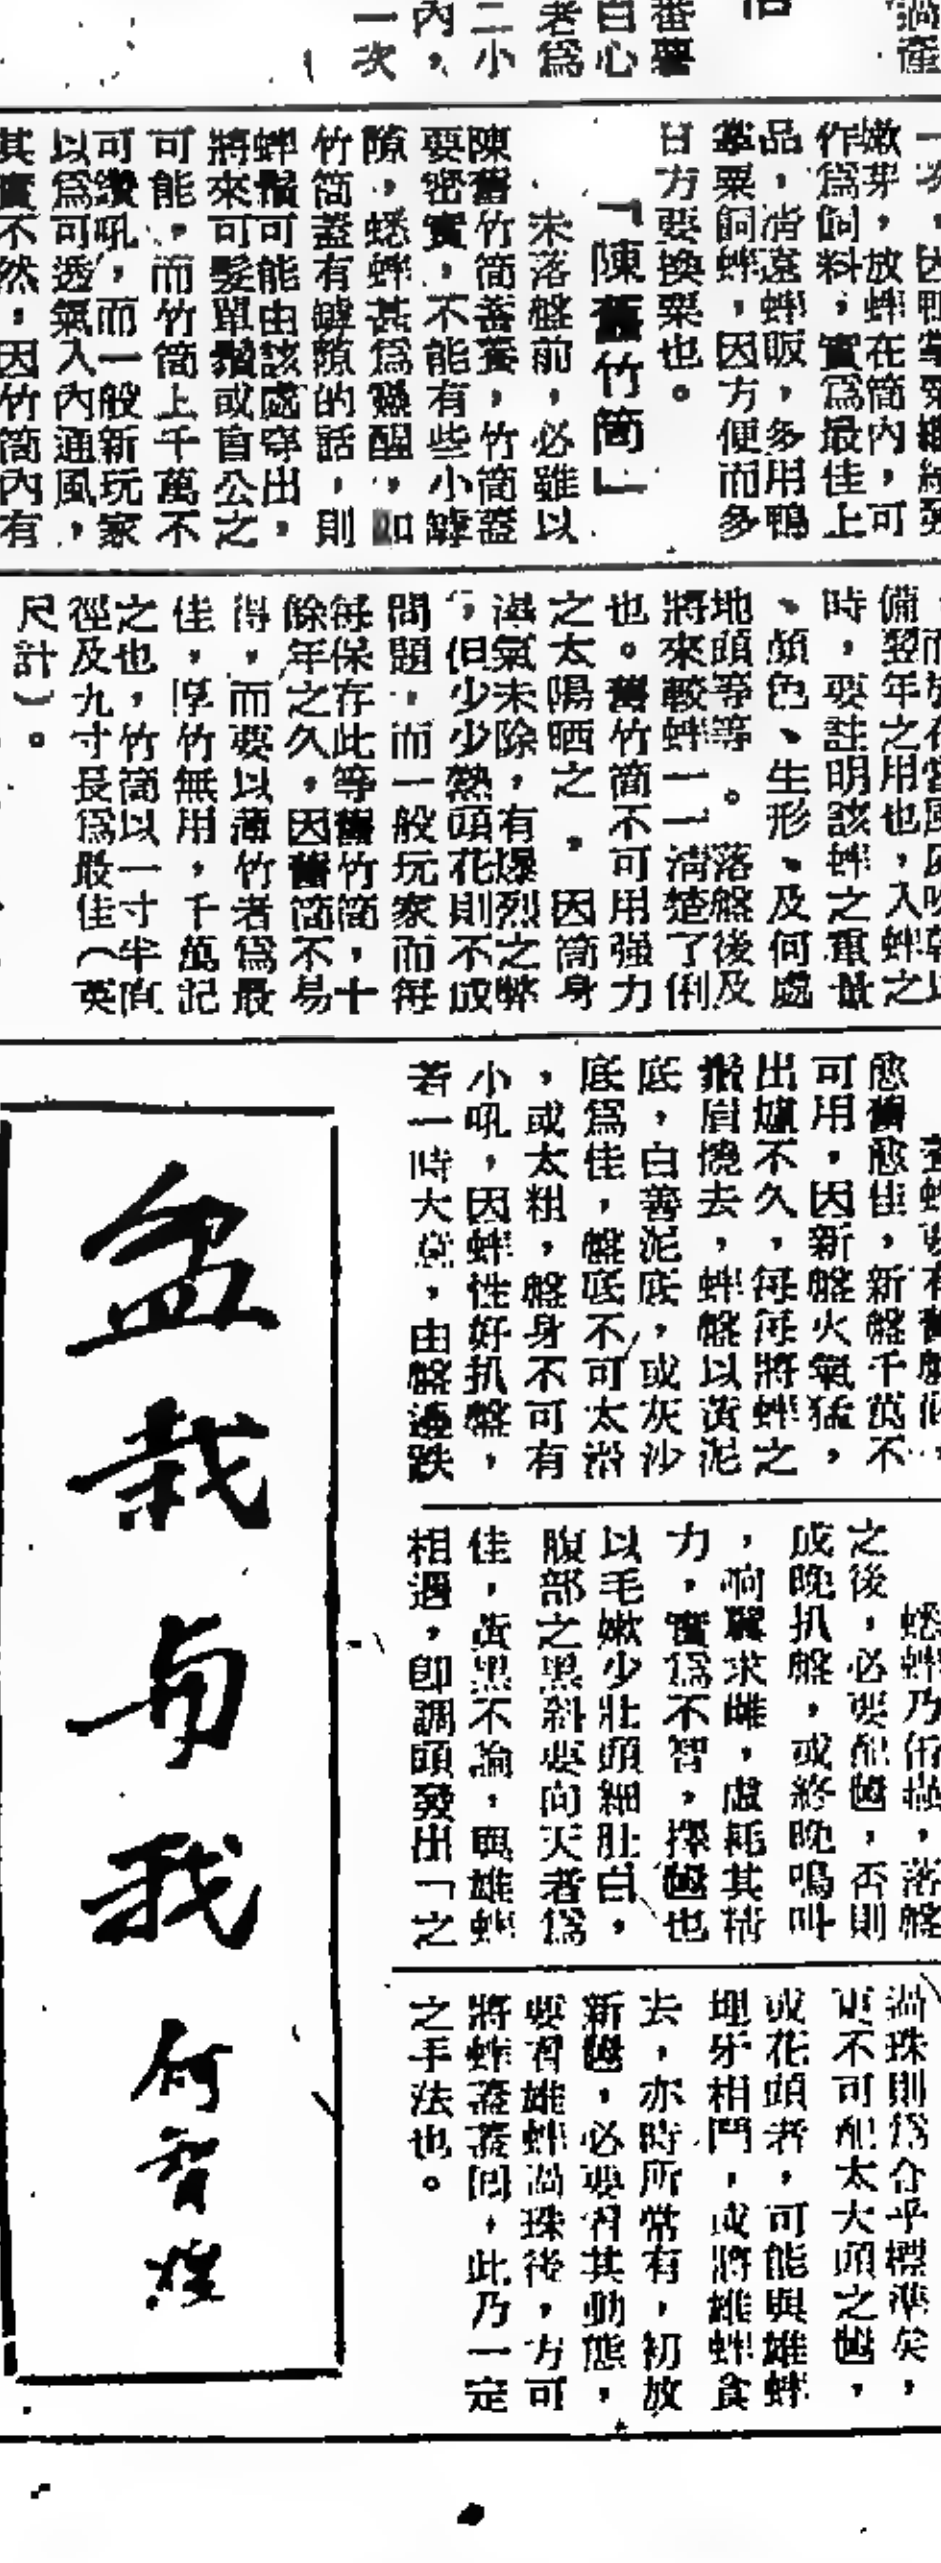 過產
番薯
白心
老為
二小
內，
一次
嫩芽，放蟀在筒內，可
作為飼料，實為最佳上
品，清遠蟀販，多用鴨
掌粟飼蟀，因方便而多
日方要換粟也。
『陳舊竹筒』
未落盤前，必雖以
陳舊竹筒蓄養，竹筒蓋
要密實，不能有些小罅
隙，蟋蟀甚為醒，如
竹筒蓋有罅隙的話，則
蟀鬚可能由該處穿出，
將來可髮單鬚或盲公之
可能，而竹筒上千萬不
可鑽吼，而一般新玩家
以為可透氣入內通風，
其實不然，因竹筒內有
備翌年之用也，入蟀之
時，要註明該蟀之重量
、顏色、生形、及何處
地頭等等。落盤後及
將來較蟀一一清楚了俐
也。舊竹筒不可用強力
之太陽晒之，因筒身
濕氣未除，有爆烈之弊
，但少少熱頭花則不成
問題，而一般玩家而每
每保存此等舊竹筒，十
餘年之久，因舊筒不易
得，而要以薄竹者為最
佳，厚竹無用，千萬記
之也，竹筒以一寸半直
徑及九寸長為最佳（英
尺計）。
愈舊愈佳，新盤千萬不
可用，因新盤火氣猛，
出爐不久，每每將蟀之
鬚眉燒去，蟀盤以黃泥
底，白善泥底，或灰沙
底為佳，盤底不可太滑
，或太粗，盤身不可有
小吼，因蟀性好扒盤，
若一時大意，由盤邊跌
蟋蟀乃，落盤
之後，必要配乸，否則
成晚扒盤，或終晚鳴叫
，响翼求雌，虛耗其精
力，實為不智，擇乸也
以毛嫩少壯頭細肚白，
腹部之黑斜要向天者為
佳，黃黑不論，與雄蟀
相遇，卽調頭發出「之
過珠則為合乎標準矣，
更不可配太大頭之乸，
或花頭者，可能與雄蟀
埋牙相鬥，或將雄蟀食
去，亦時所常有，初放
新乸，必要看其動態，
要看雄蟀過珠後，方可
將蟀蓋蓋回，此乃一定
之手法也。
盆栽與我
何智